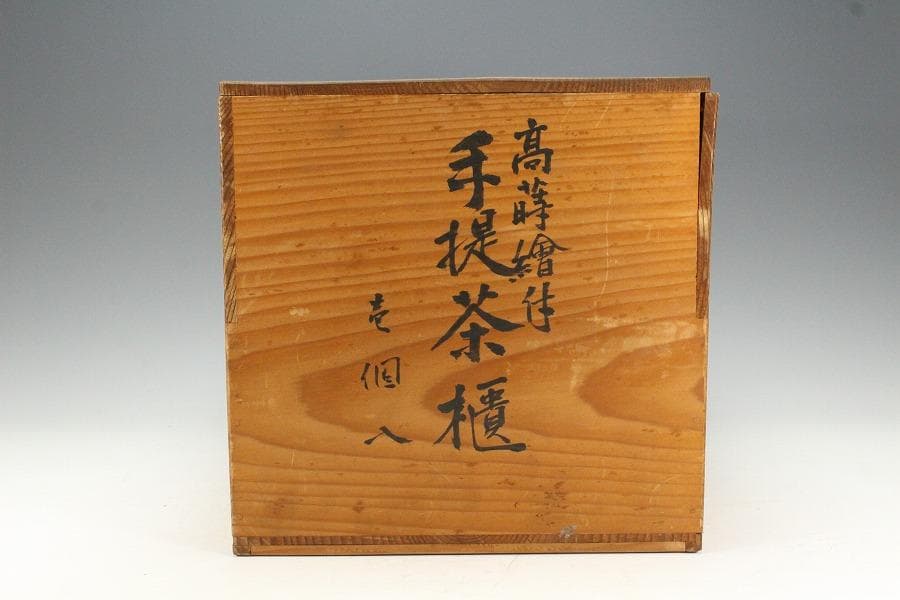 高蒔繪付
手提茶櫃
壱個入